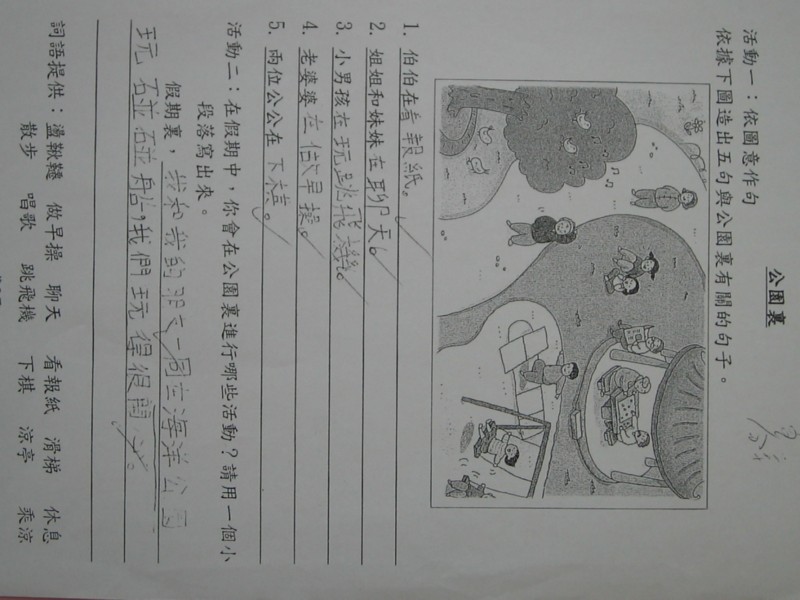 公園裏
活動一：依圖意作句
依據下圖造出五句與公園裏有關的句子。
1. 伯伯在看報紙。
2. 姐姐和妹妹在聊天。
3. 小男孩在玩跳飛機。
4. 老婆婆在做早操。
5. 兩位公公在下棋。
活動二：在假期中，你會在公園裏進行哪些活動？請用一個小
段落寫出來。
假期裏，我和我的朋友一同在海洋公園
玩碰碰船，我們玩得很開心。
詞語提供：盪鞦韆 做早操 聊天 看報紙 滑梯 休息
散步 唱歌 跳飛機 下棋 涼亭 乘涼